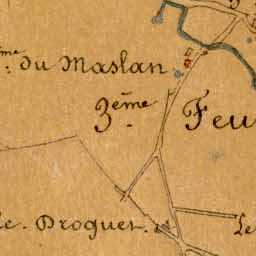 ème. du Maslan
3ème Feu
le. Droguet.
Le